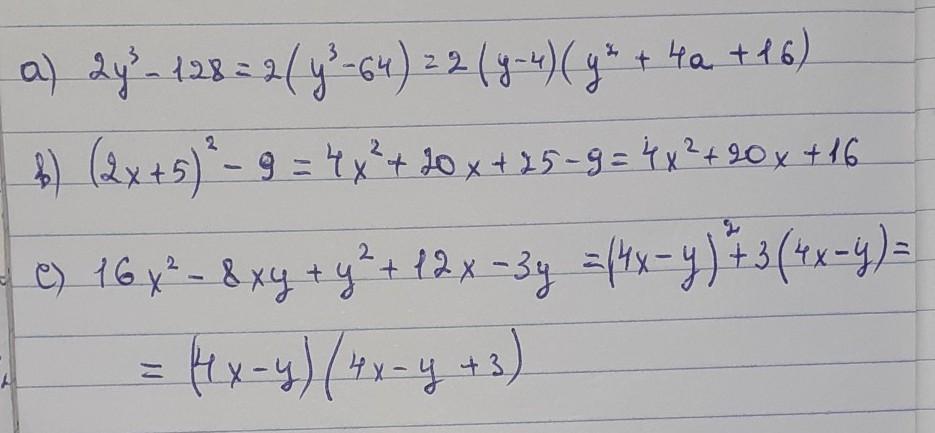 a) 2y³ - 128 = 2(y³-64) = 2(y-4)(y² + 4a + 16)
b) (2x+5)² - 9 = 4x² + 20x + 25 - 9 = 4x² + 20x + 16
c) 16x² - 8xy + y² + 12x - 3y = (4x-y)² + 3(4x-y) =
= (4x-y)(4x-y+3)